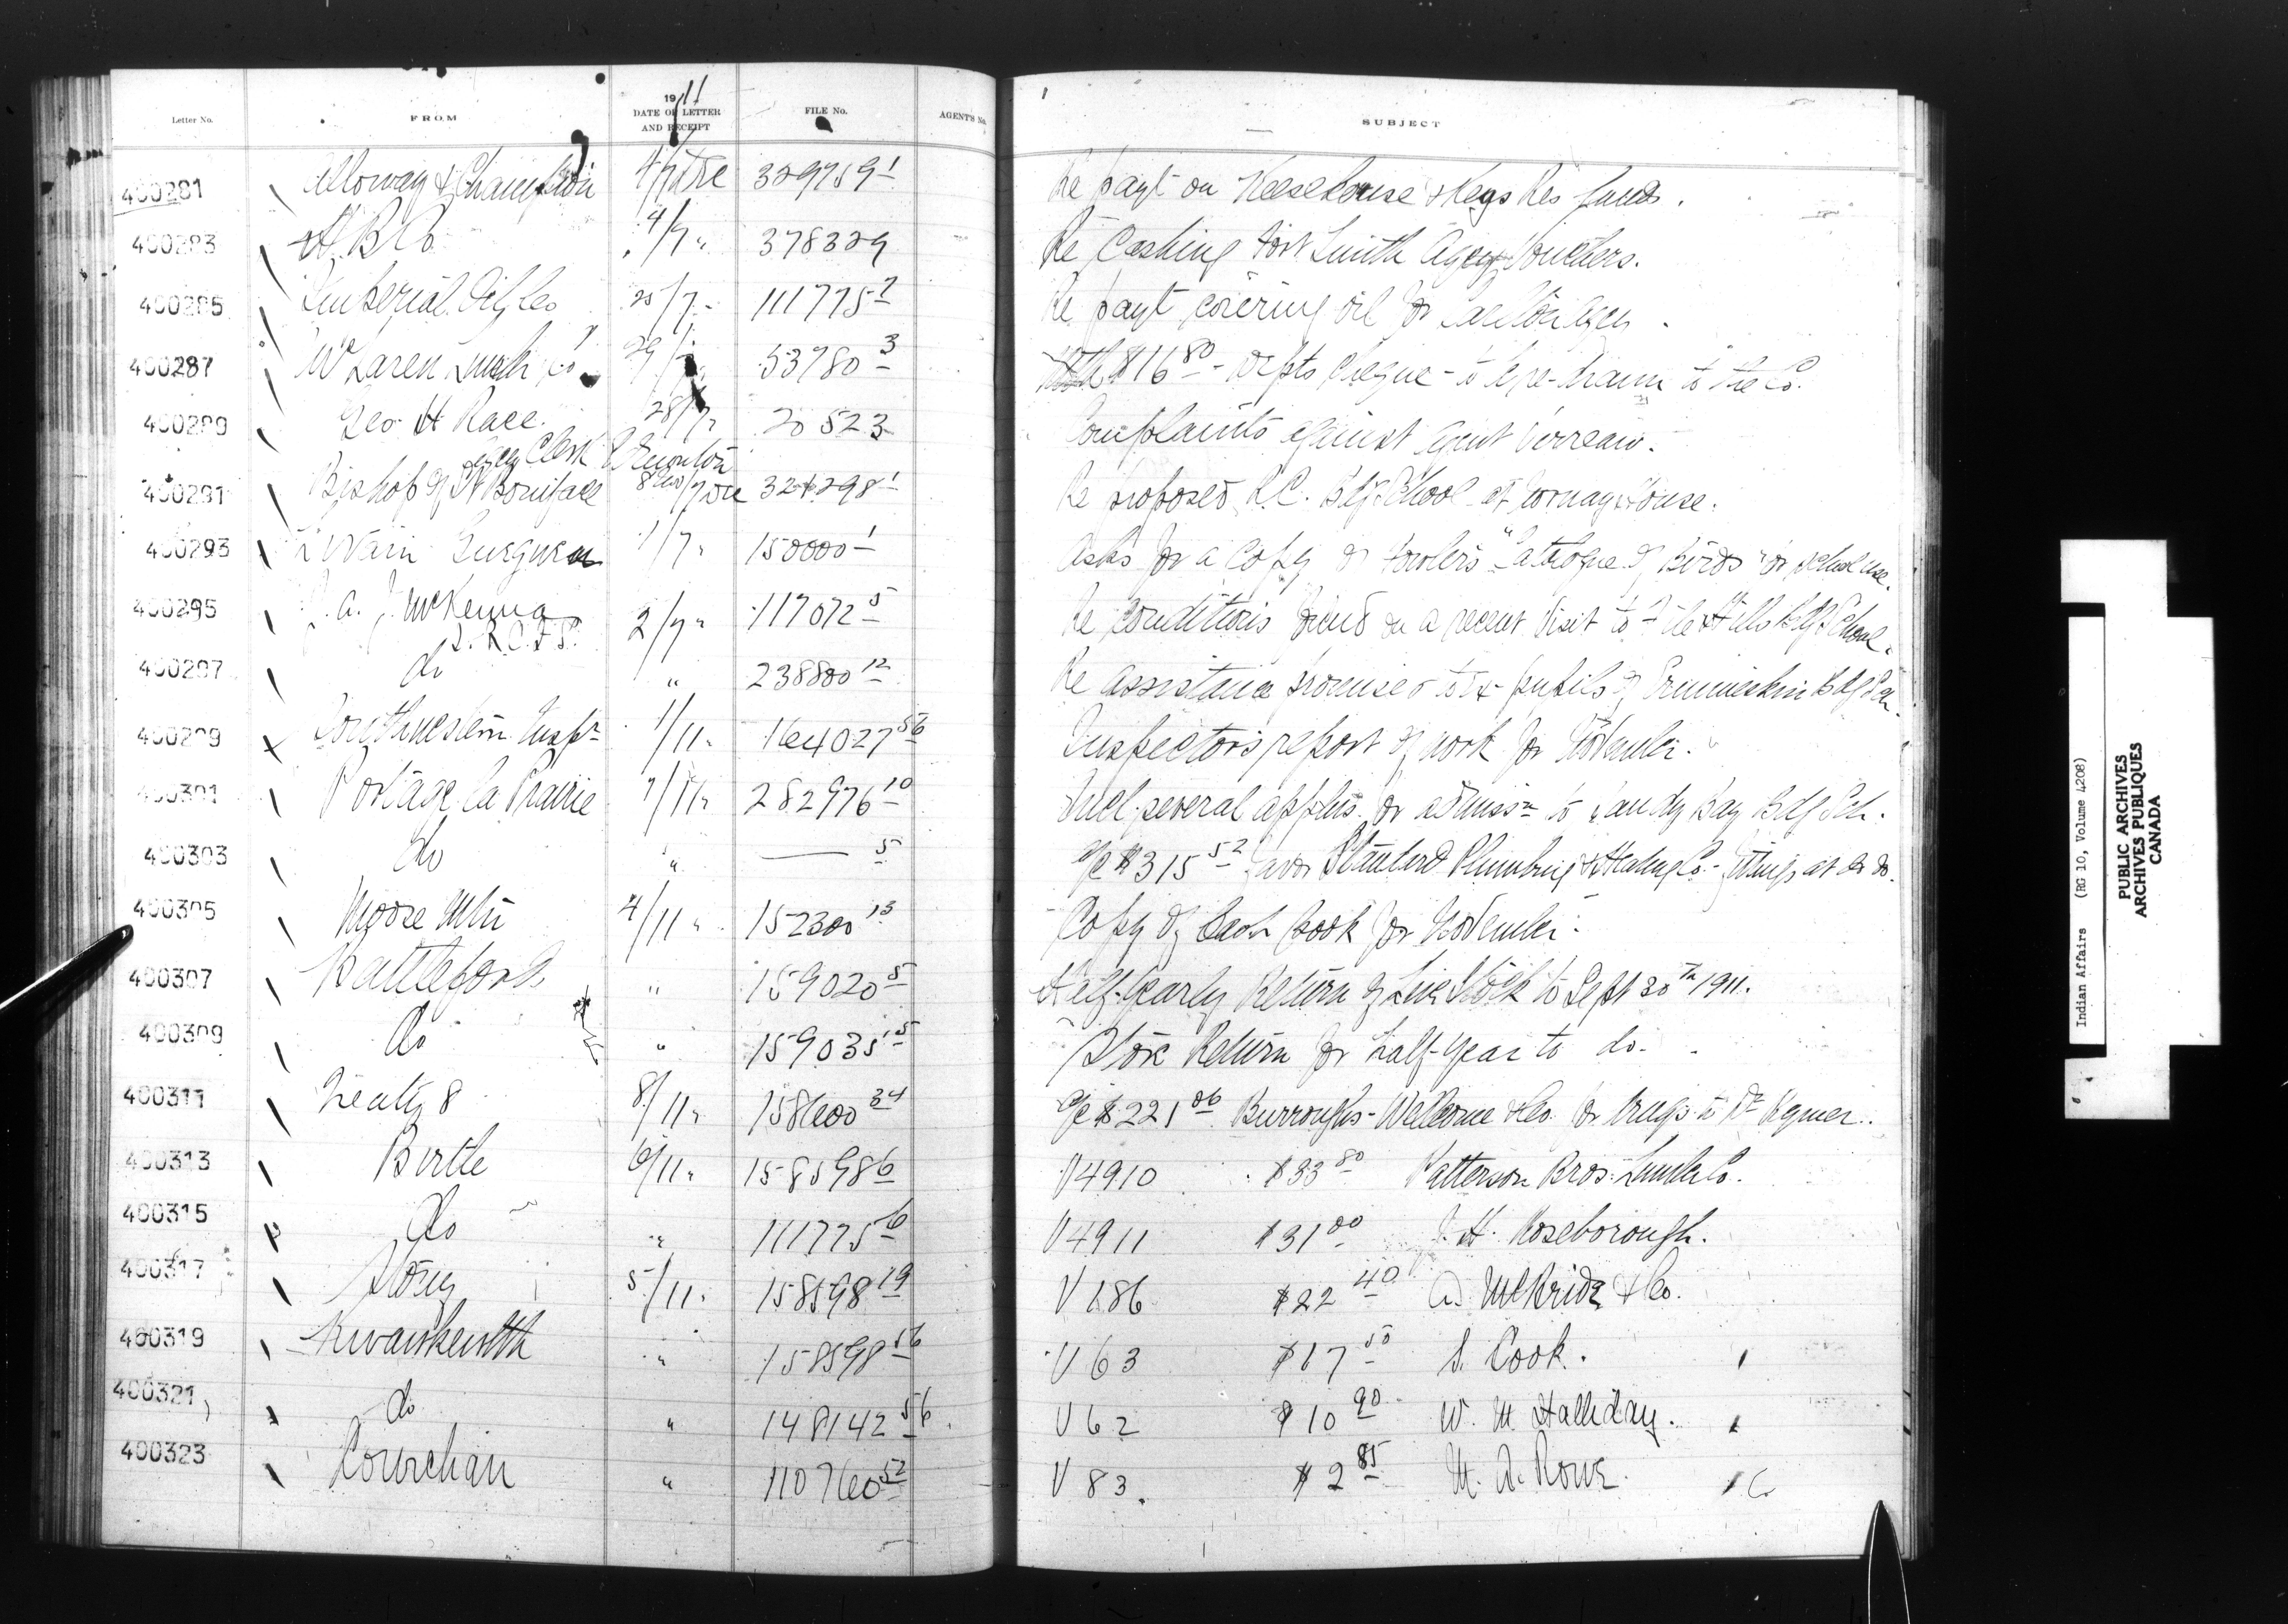 1911
Letter No. FROM DATE OF LETTER AND RECEIPT FILE No. AGENT'S No. SUBJECT
400281 Alloway & Champion 4/7 Dec 329759 1 Re payt on Keesekouse & Keys Res funds.
400283 H B Co 4/7 " 378329 Re Cashing Fort Smith Agcy Vouchers.
400285 Imperial Oil Co 25/7 " 111775 7 Re payt covering oil for Carlton Agcy.
400287 McLaren Lumb Co 29/7 " 53780 3 $16 80 - Depts cheque - to be re-drawn to the Co.
400289 Geo. H Race. Agcy Clerk Edmonton 28/7 " 20523 Complaints against Agent Verreau.
400291 Bishop of St Boniface 8 /7 Dec 324298 1 Re proposed R.C. Bdg School at Norway House.
400293 Gueguen 1/7 " 150000 1 Asks for a Copy of "Catalogue of Birds" for school use.
400295 J. A. J. McKenna I. R. C. I. S. 2/7 " 117072 5 Re conditions found on a recent Visit to File Hills Bdg School.
400297 do " 238800 12 Re assistance promised to Ex pupils of Ermineskin Bdg Sch.
400299 Southwestern Insp. 1/11 " 164027 56 Inspectors report of work for November.
400301 Portage la Prairie 7/11 " 282976 10 Incl. several applns. for admissn to Sandy Bay Bdg Sch.
400303 do " — 5 a/c $315 52 favor Standard Plumbing & Heating Co - fittings at do do.
400305 Moose Mtn 4/11 " 152300 13 Copy of Cash Book for November.
400307 Battleford " 159020 5 Half-Yearly Return of Live Stock to Sept 30th 1911.
400309 do " 159035 15 Store Return for half-year to do.
400311 Treaty 8 8/11 " 158600 34 a/c $221 06 Burroughs-Wellcome & Co. for drugs to Dr
400313 Birtle 6/11 " 158598 6 V4910 $33 80 Patterson Bros. Lumber Co.
400315 do " 111775 6 V4911 $31 00 J. H. Roseborough.
400317 Stony 5/11 " 158598 19 V186 $22 40 A. McBride & Co.
400319 Kwawkewlth " 158598 56 V63 $17 50 S. Cook.
400321 do " 148142 56 V62 $10 90 W. M. Halliday.
400323 Cowichan " 110760 52 V83. $2 85 M. A. Rowe.
Indian Affairs (RG 10, Volume 4208)
PUBLIC ARCHIVES
ARCHIVES PUBLIQUES
CANADA